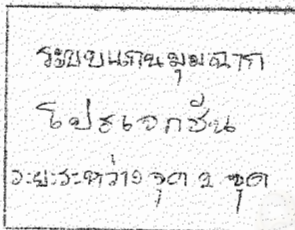 ระบบแกนมุมฉาก
โปรเจกชัน
ระยะระหว่าง จุด 2 จุด